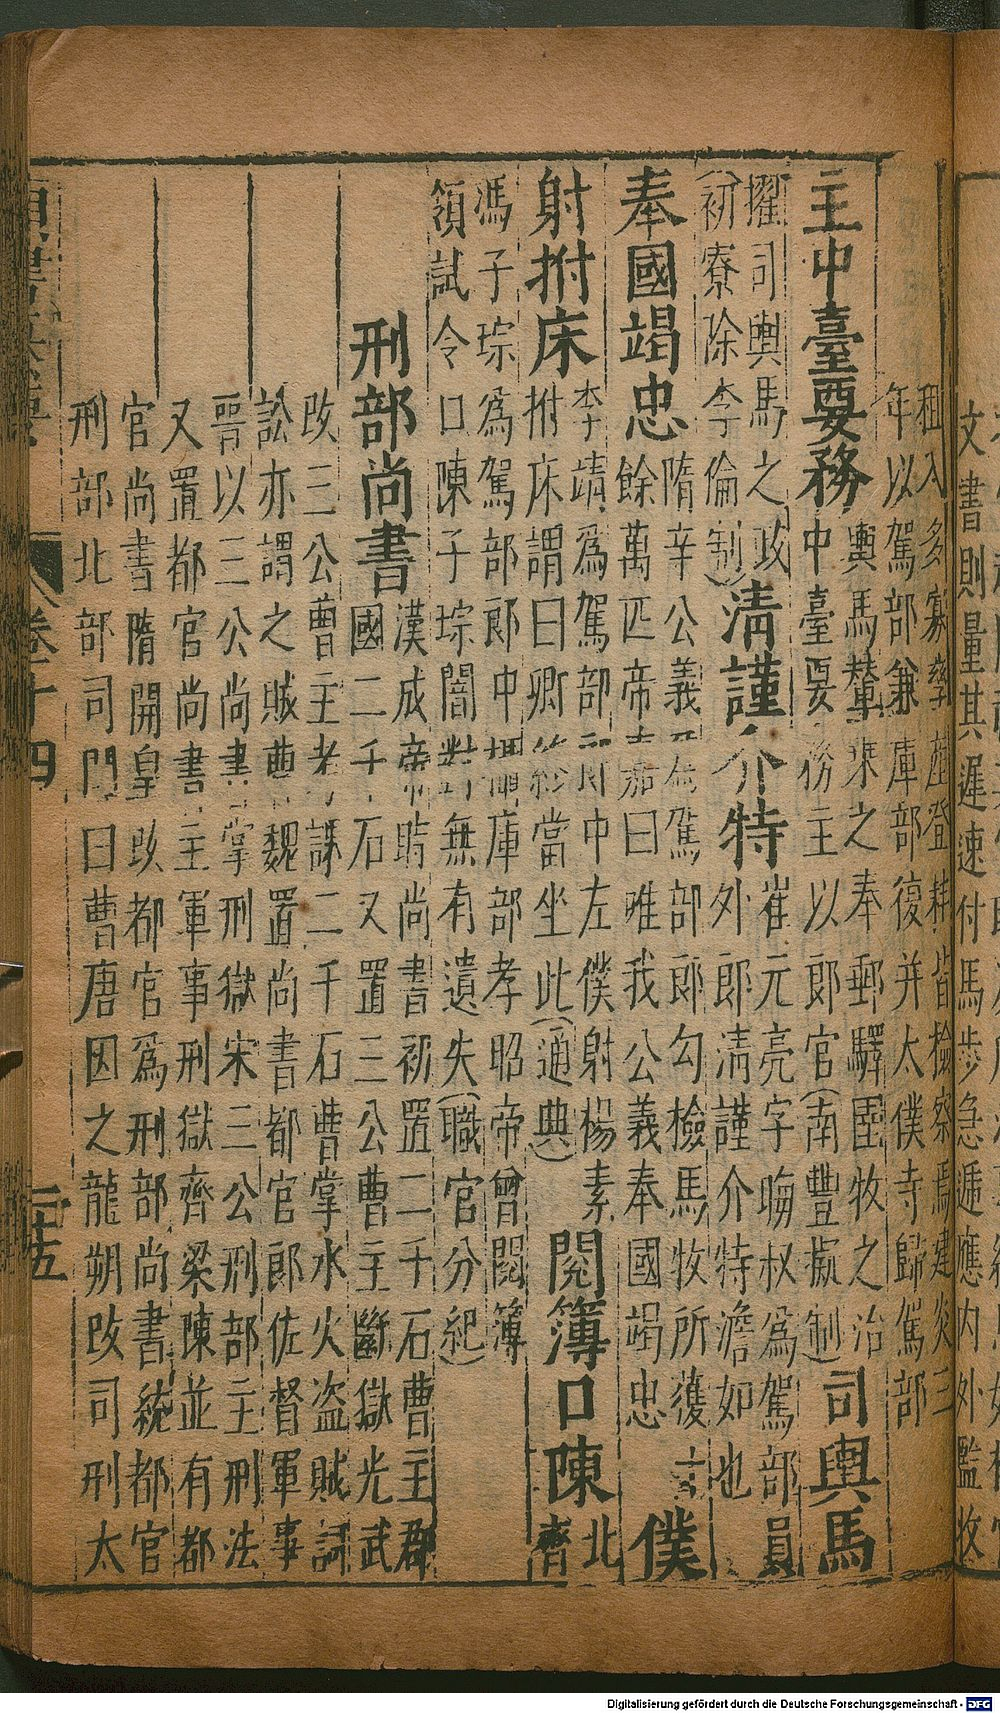 文書則量其遲速付馬步急遞應内外監牧
租入多寡孳產登耗皆檢察焉建炎三
年以駕部兼庫部復并太僕寺歸駕部
主中臺要務
輿馬輦乘之奉郵驛圉牧之治
中臺要務主以郎官(南豐擬制)
司輿馬
擢司輿馬之政
(初寮除李倫制)
清謹介特
崔元亮字晦叔為駕部員
外郎清謹介特澹如也
奉國竭忠
隋辛公義為駕部郎勾檢馬牧所獲十
餘萬匹帝曰唯我公義奉國竭忠
僕
射拊床
李靖為駕部郎中左僕射楊素
拊床謂曰卿終當坐此(通典)
閱簿口陳
北
齊
馮子琮為駕部郎中攝庫部孝昭帝曾閱簿
領試令口陳子琮闇對無有遺失(職官分紀)
刑部尚書
漢成帝時尚書初置二千石曹主郡
國二千石又置三公曹主斷獄光武
改三公曹主考課二千石曹掌水火盜賊詞
訟亦謂之賊曹魏置尚書都官郎佐督軍事
晉以三公尚書掌刑獄宋三公刑部主刑法
又置都官尚書主軍事刑獄齊梁陳並有都
官尚書隋開皇改都官為刑部尚書統都官
刑部北部司門曰曹唐因之龍朔改司刑太
卷十四
二十五
Digitalisierung gefördert durch die Deutsche Forschungsgemeinschaft - DFG